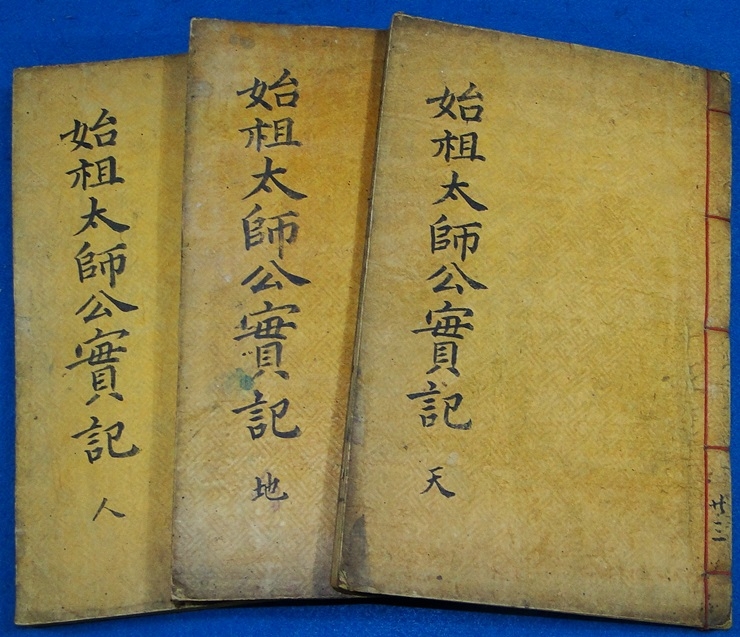 始祖太師公實記
天
廿三
始祖太師公實記
地
始祖太師公實記
人